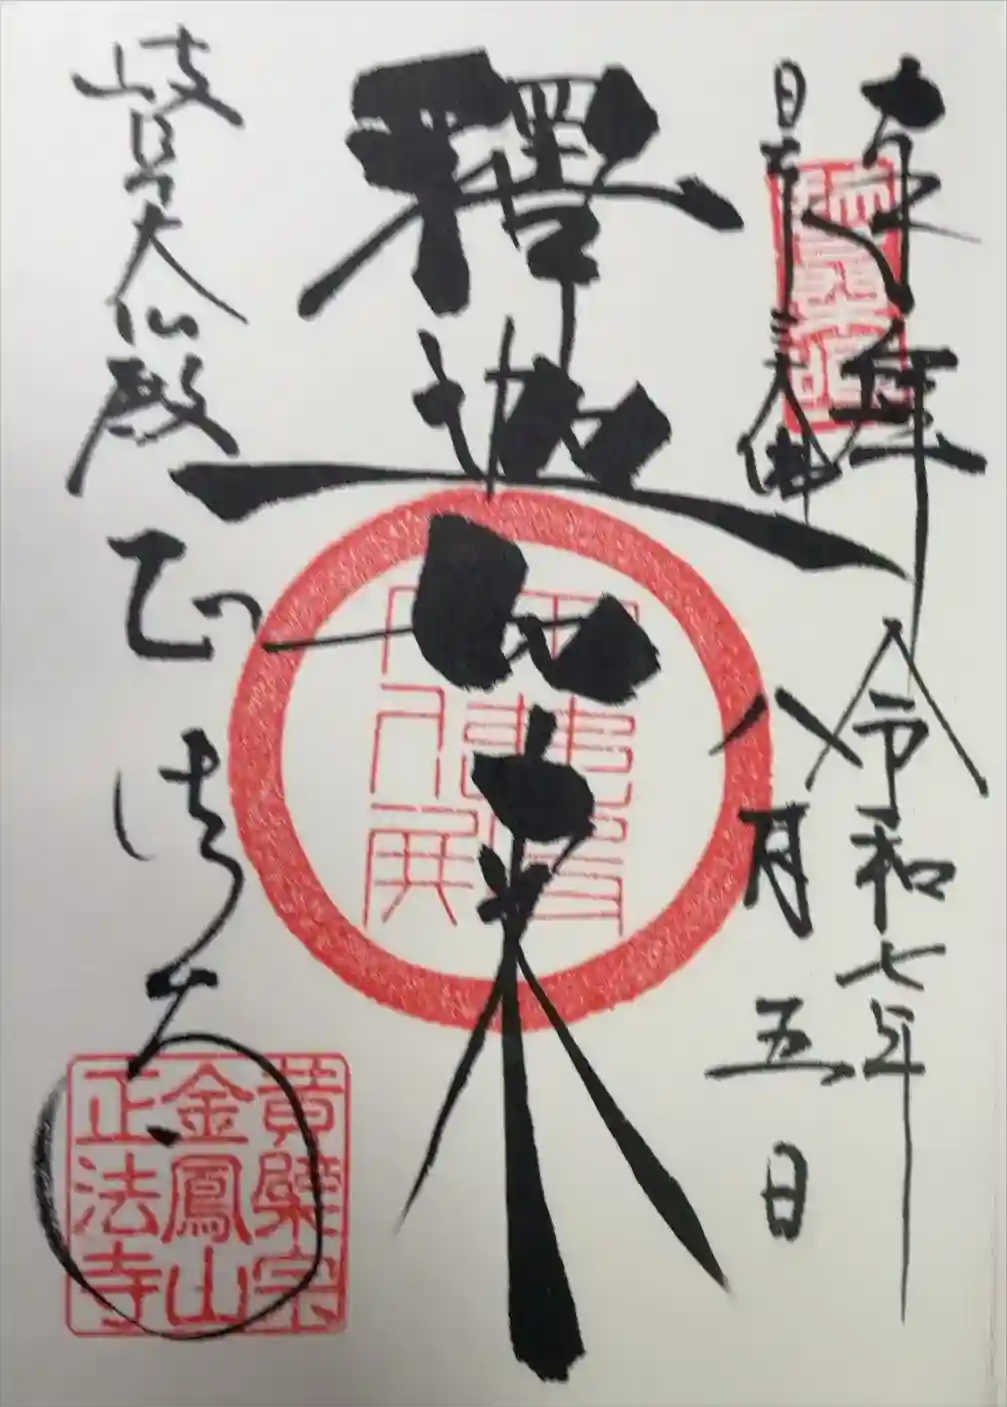 令和七年
日本三大佛
八月五日
釋迦如来
岐阜大仏殿
正法寺
黄檗宗
金鳳山
正法寺